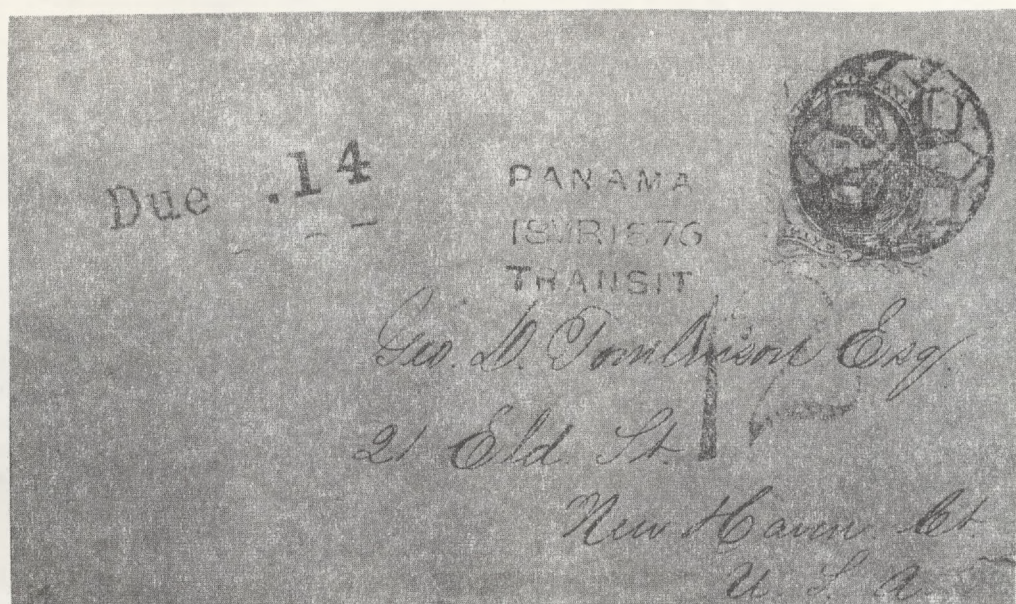 Due .14
PANAMA
1876
TRANSIT
12
Geo. D. Tomlinson Esq.
21 Eld St.
New Haven Ct.
U. S. A